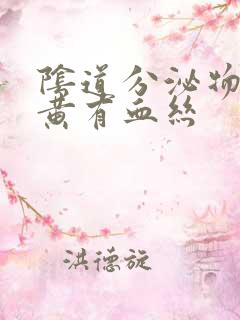 陰道分泌物
黃有血絲
洪德旋